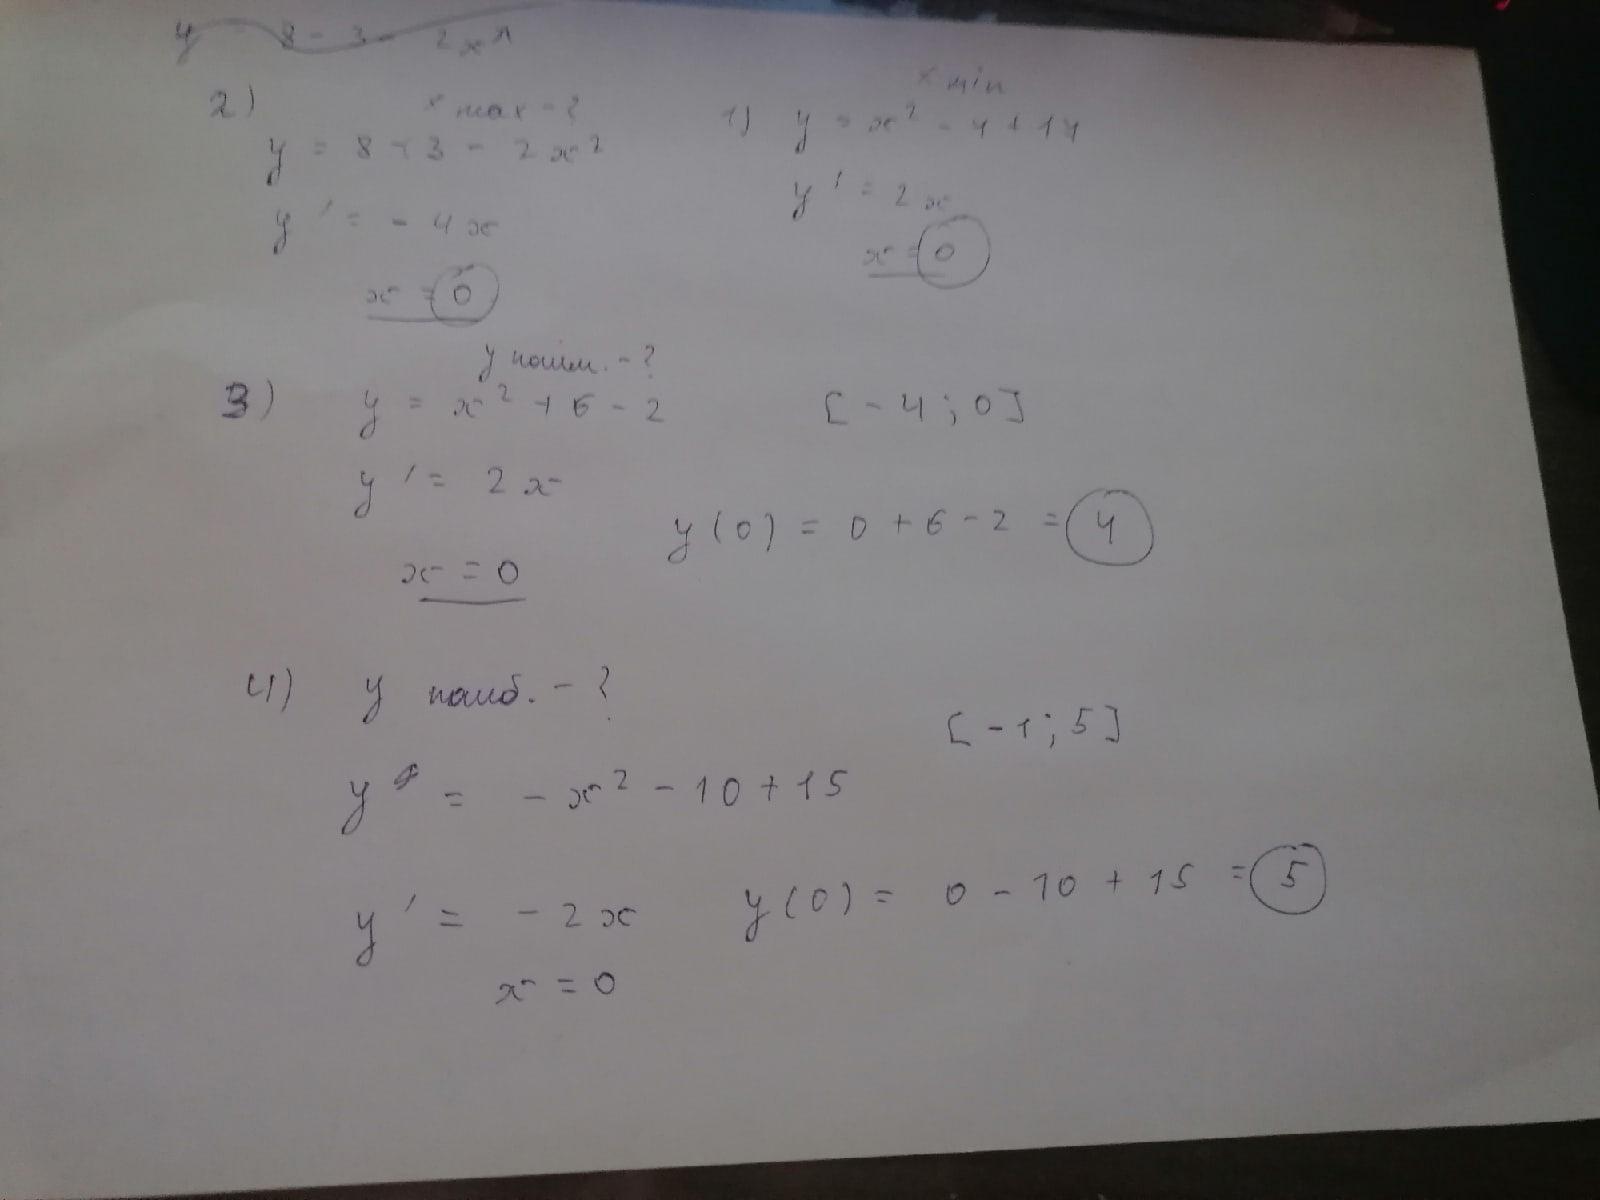 y 8 - 3 - 2x
2) x max - ?
y = 8 + 3 - 2x²
y' = - 4x
x = 0
x min
1) y = x² - 4 + 14
y' = 2x
x = 0
y наим. - ?
3) y = x² + 6 - 2 [-4; 0]
y' = 2x
x = 0
y(0) = 0 + 6 - 2 = 4
4) y наиб. - ?
[-1; 5]
y = - x² - 10 + 15
y' = - 2x
x = 0
y(0) = 0 - 10 + 15 = 5